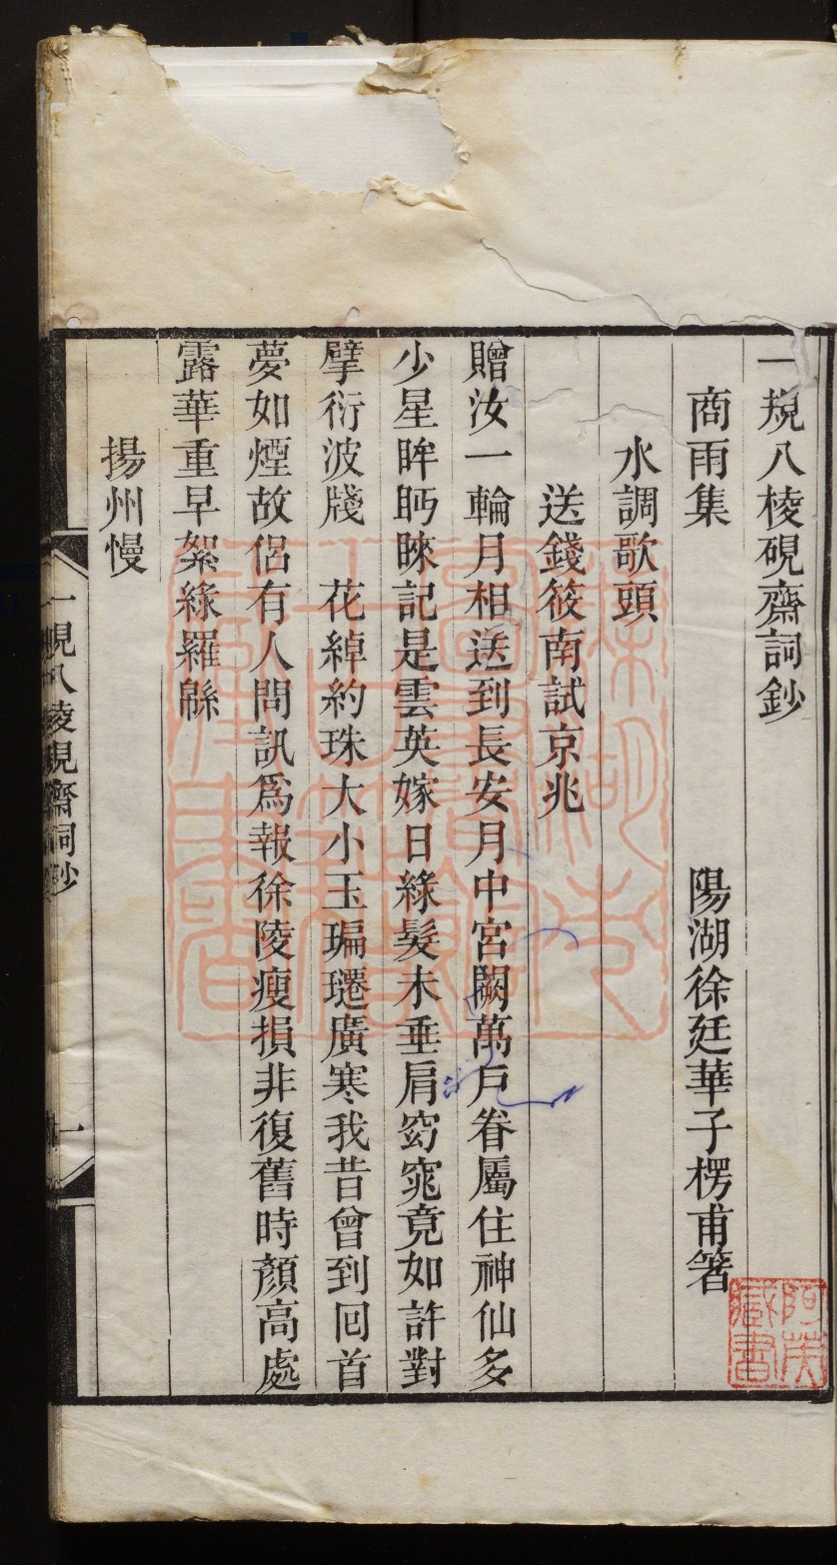 一規八棱硯齋詞鈔
商雨集 陽湖徐廷華子楞甫箸
水調歌頭
送錢筱南試京兆
贈汝一輪月相送到長安月中宮闕萬戶眷屬住神仙多
少星眸眄睞記是雲英嫁日綠髮未垂肩窈窕竟如許對
擘衍波牋 花綽約珠大小玉㻞璶廣寒我昔曾到回首
夢如煙故侶有人問訊爲報徐陵瘦損非復舊時顏高處
露華重早絮綠羅緜
揚州慢
一規八棱硯齋詞鈔
一
阿英
藏書